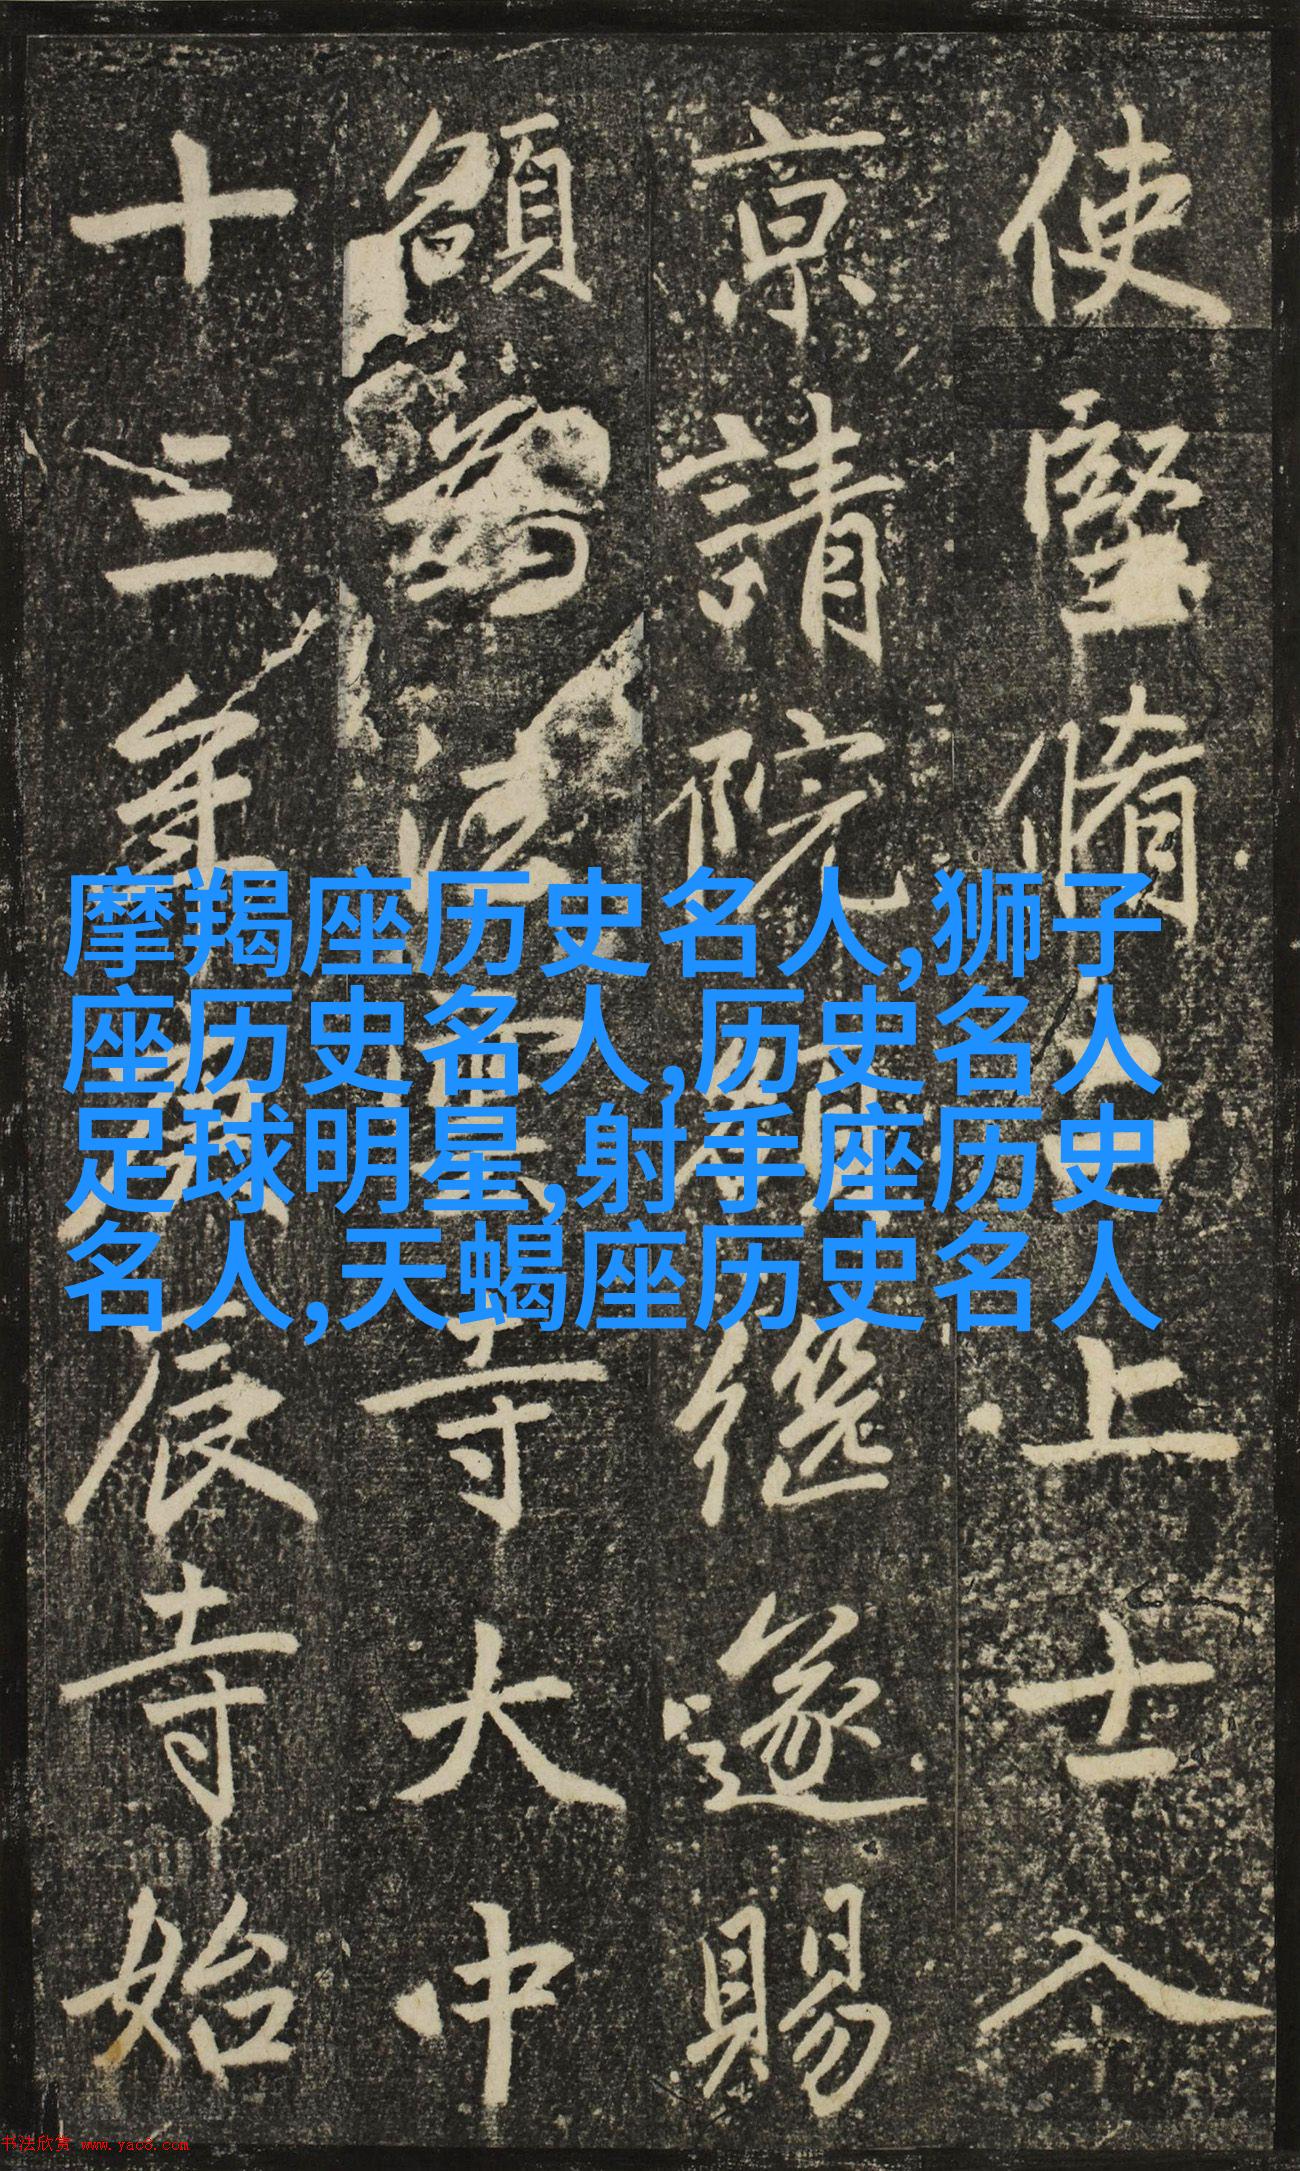 使堅脩上士入
京請院額繼遂賜
額為法寺大中
十三年辰寺始
摩羯座历史名人,狮子
座历史名人,历史名人
足球明星,射手座历史
名人,天蝎座历史名人
书法欣赏 www.yac8.com